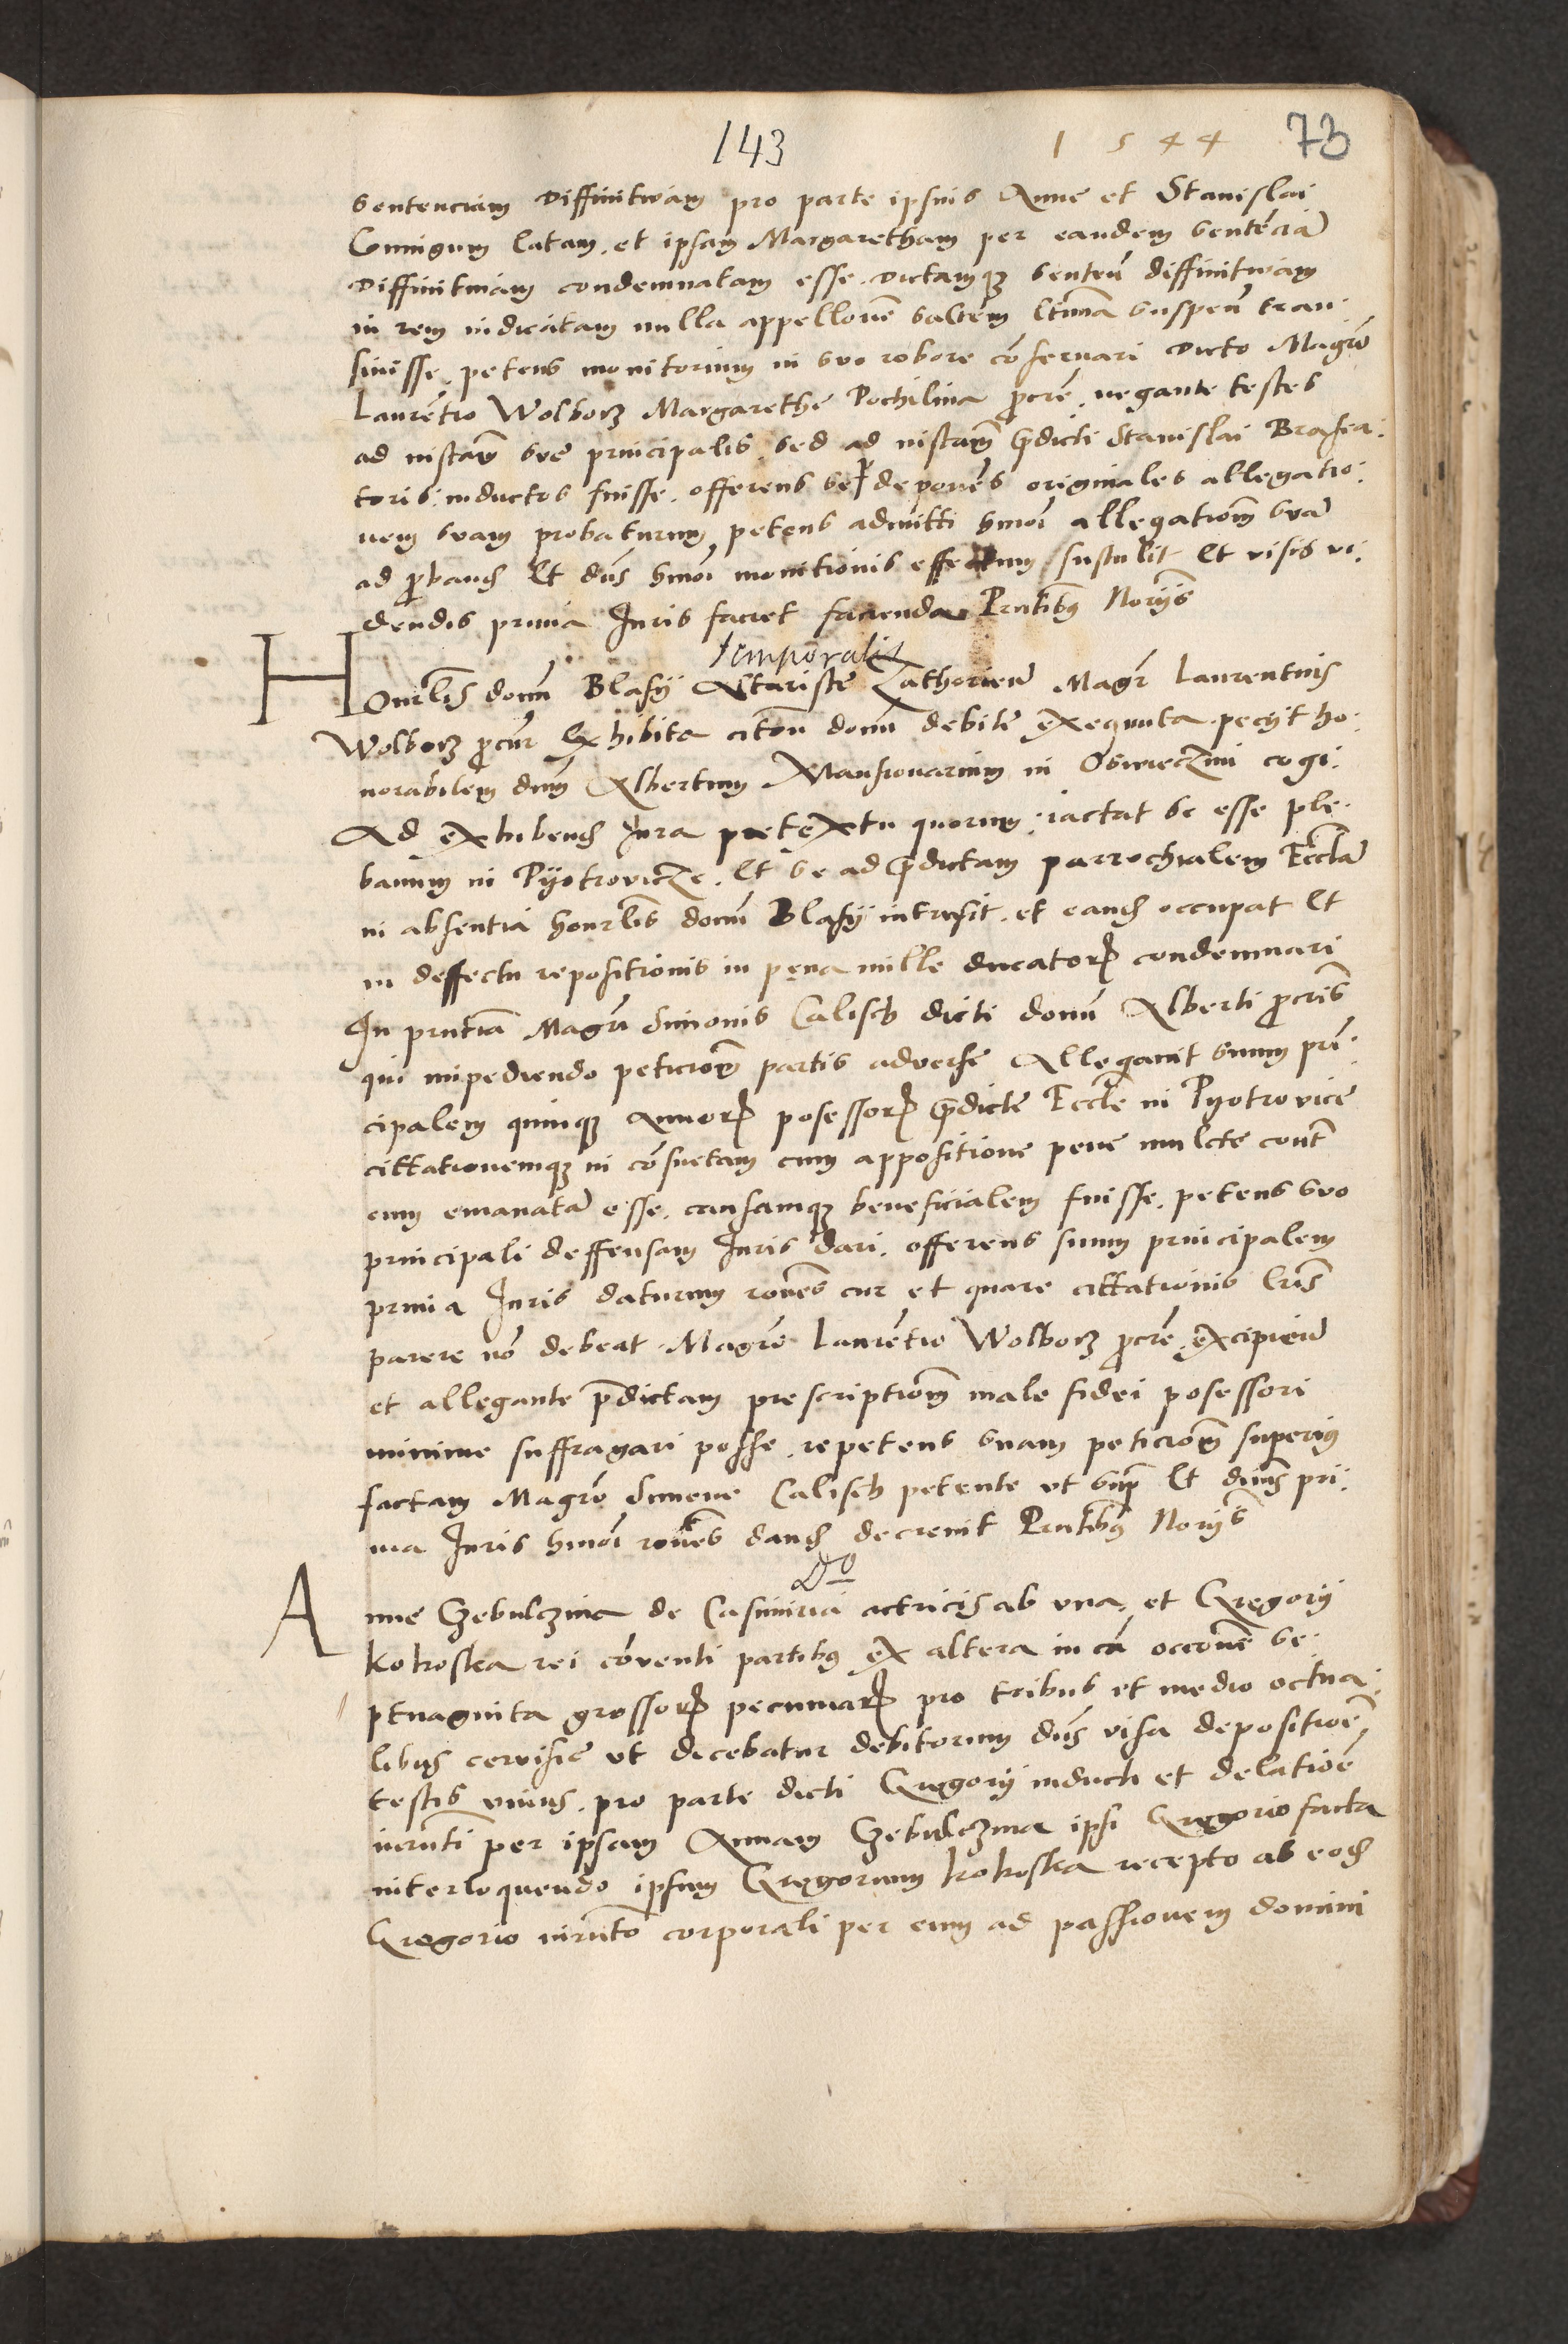 143 1544 73
sentenciam diffinitivam pro parte ipsius Anne et Stanislai
Coniugum latam, et ipsam Margaretham per eandem sentēciā
diffinitivam condemnatam esse. dictamqȝ senten̄ diffinitivam
in rem iudicatam nulla appellōne saltem ltīma suspen̄ tran:
sivisse. petens monitorium in suo robore cōservari dicto Magrō
Laurētio Wolborȝ Margarethe Pochilina p̄cre. negante testes
ad instā̄ sue principalis. sed ad instā̄m p̄dicti Stanislai Brasia:
toris: inductos fuisse. offerens se p̱ deponēs originales allegatio:
nem suam probaturum, petens admitti hmōi allegatiōm suā
ad p̄band̄ Et dn̄s hmōi monitionis effectum sustulit Et visis vi:
dendis primia Juris faciet facienda Pn̄tibȝ Noriis
temporalis
Honrlis domī Blasij Altariste Zathorien̄ Magr̄ Laurentius
Wolborȝ p̄cur̄ Exhibita citōn domī debite exequuta. pecijt ho:
norabilem dnm̄ Albertum Mansionarium in Oswieczim cogi.
Ad exhibend̄ Jura pretextu quorum: iactat se esse ple:
banum in Pyotrovicze. Et se ad p̄dictam parrochialem Eccl̄iā
in absentia honrlis domī Blasij intrusit. et eand̄ occupat Et
in deffectu repositionis in pena mille ducatoꝝ condemnari
In pn̄tia Magrī Simonis Calisch dicti domī Alberti p̄cris
qui impediendo peticiōm partis adverse Allegavit suum prī:
cipalem quinqȝ Annoꝝ posessoꝝ p̄dicte Eccl̄ie in Pyotrovice
cittationemqȝ in cōsuetam cum appositione pene mulcte cont̄
eum emanatā esse. causamqȝ beneficialem fuisse. petens suo
principali deffensam Juris dari. offerens suum principalem
primia Juris daturum rōnes cur et quare cittationis lris̄
parere nō debeat. Magrō Laurētio Wolborȝ p̄cre. excipien̄
et allegante p̄dictam prescriptiōm male fidei posessori
minime suffragari posse. repetens suam peticiōm superiꝯ
factam Magrō Simone Calisch petente ut sup̄ Et dn̄s pri:
ma Juris hmōi rōnes dand̄ decrevit Pn̄tibȝ Noriis
Dō
Anne Gzebulczina de Casimiria actricis ab vna, et Gregorij
kokoska rei cōventi partibȝ ex altera in cā occōne se:
ptuaginta grossoꝝ pecuniaꝝ pro tribus et medio octua:
libus cervisie ut dicebatur debitorum dn̄s visa depositiōe
testis vnius. pro parte dicti Gregorij inducti et delatiōe
iurn̄ti per ipsam Annam Gzebulczina ipsi Gregorio facta
interloquendo ipsum Gregorium kokoska recepto ab eod̄
Gregorio iurn̄to corporali per eum ad passionem domini